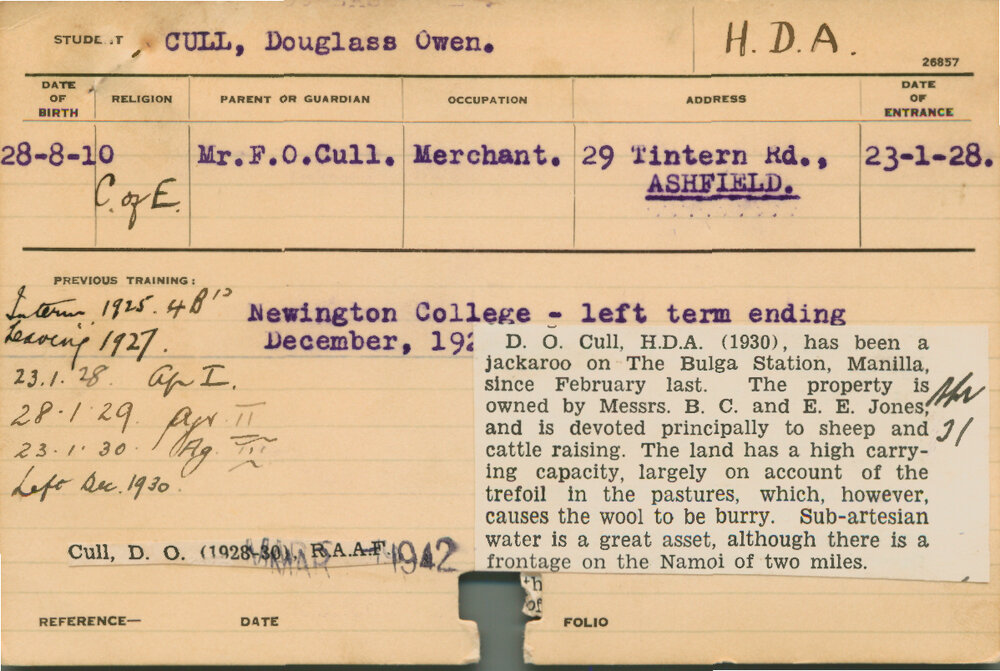 STUDENT CULL, Douglass Owen. H. D. A.
26857
DATE OF BIRTH RELIGION PARENT OR GUARDIAN OCCUPATION ADDRESS DATE OF ENTRANCE
28-8-10 Mr.F.O.Cull. Merchant. 29 Tintern Rd., 23-1-28.
C. of E. ASHFIELD.
PREVIOUS TRAINING:
Interm. 1925. 4B
Newington College - left term ending
Leaving 1927.
December, 192
23.1.28. Agr I.
28.1.29 Agr II
23.1.30. Ag. III
Left Dec. 1930.
D. O. Cull, H.D.A. (1930), has been a
jackaroo on The Bulga Station, Manilla,
since February last. The property is
owned by Messrs. B. C. and E. E. Jones,
and is devoted principally to sheep and
cattle raising. The land has a high carry-
ing capacity, largely on account of the
trefoil in the pastures, which, however,
causes the wool to be burry. Sub-artesian
water is a great asset, although there is a
frontage on the Namoi of two miles.
31
Cull, D. O. (1928-30), R.A.A.F.
MAR 1942
th
of
REFERENCE— DATE FOLIO